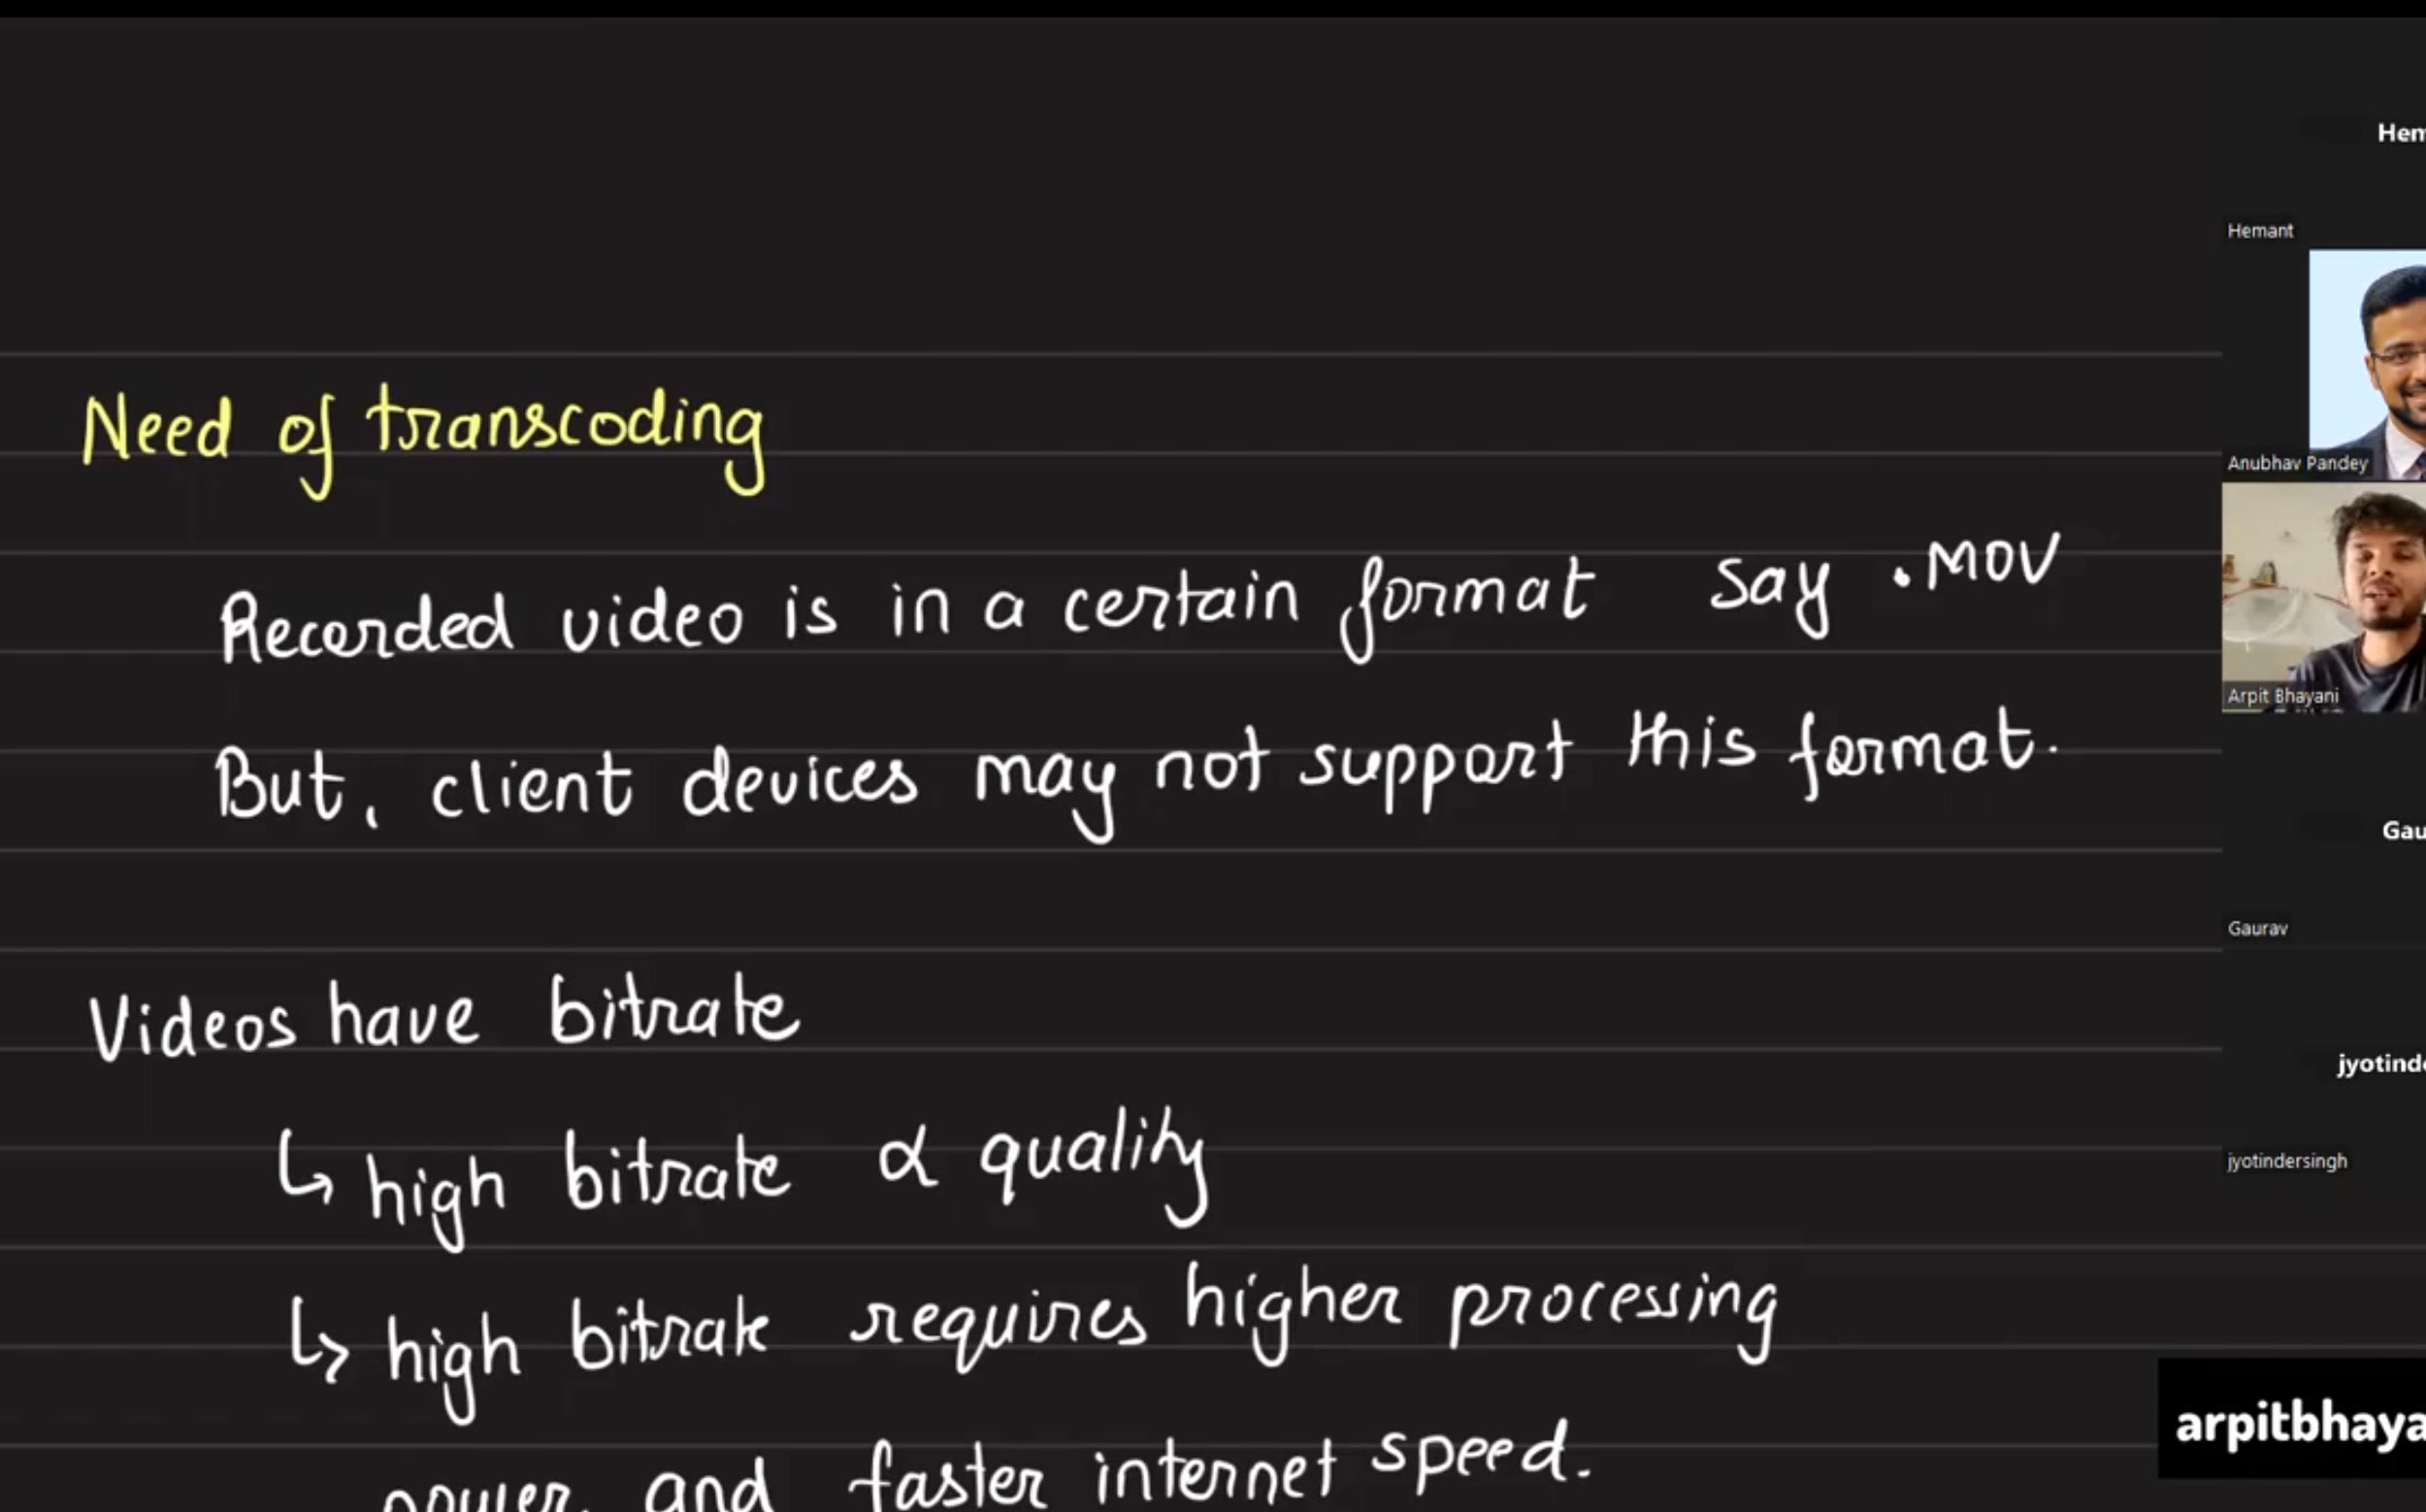 Need of transcoding
Recorded video is in a certain format say .MOV
But, client devices may not support this format.
Videos have bitrate
↳ high bitrate α quality
↳ high bitrate requires higher processing
power and faster internet speed.
Hem
Hemant
Anubhav Pandey
Arpit Bhayani
Gau
Gaurav
jyotind
jyotindersingh
arpitbhaya